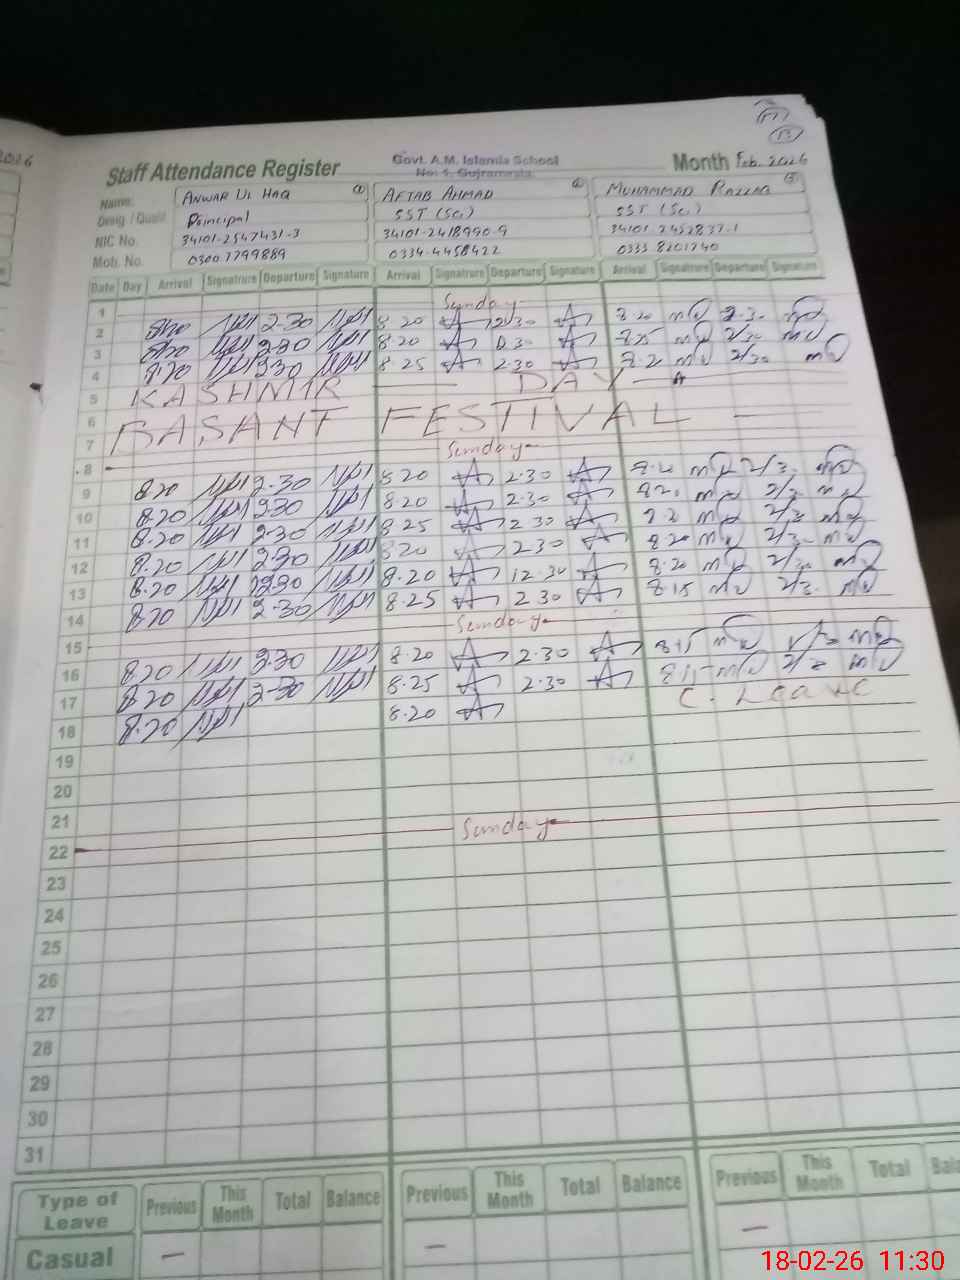 2026
13
Staff Attendance Register Govt. A.M. Islamia School No: 1, Gujranwala. Month Feb. 2026
Name: ANWAR UL HAQ 1 AFTAB AHMAD 2 MUHAMMAD RAZZAQ 3
Desig / Qualif Principal SST (Sci) SST (Sci)
NIC No. 34101-2547431-3 34101-2418990-9 34101-2452837-1
Mob. No. 03007799889 0334-4458422 0333 8201740
Date Day Arrival Signatrure Departure Signature Arrival Signatrure Departure Signature Arrival Signatrure Departure Signature
1 Sunday
2 8.20 2-30 8.20 2.30 8.20 2.30
3 8.20 2.30 8.20 2.30 8.25 2/30
4 8.20 2.30 8.25 2.30 8.2 2/30
5 KASHMIR DAY
6 BASANT FESTIVAL
7
8 Sunday
9 8.20 2.30 8.20 2.30 8.20
10 8.20 2.30 8.20 2.30
11 8.20 2.30 8.25 2.30
12 8.20 2.30 8.20 2.30 8.20
13 8.20 2.30 8.20 12.30 8.20
14 8.20 2.30 8.25 2.30 8.15
15 Sunday
16 8.20 2.30 8.20 2.30 8.15
17 8.20 2-30 8.25 2.30
18 8.20 8.20 C. Leave
19
20
21
22 Sunday
23
24
25
26
27
28
29
30
31
Type of Leave Previous This Month Total Balance Previous This Month Total Balance Previous This Month Total
Casual – – –
18-02-26 11:30